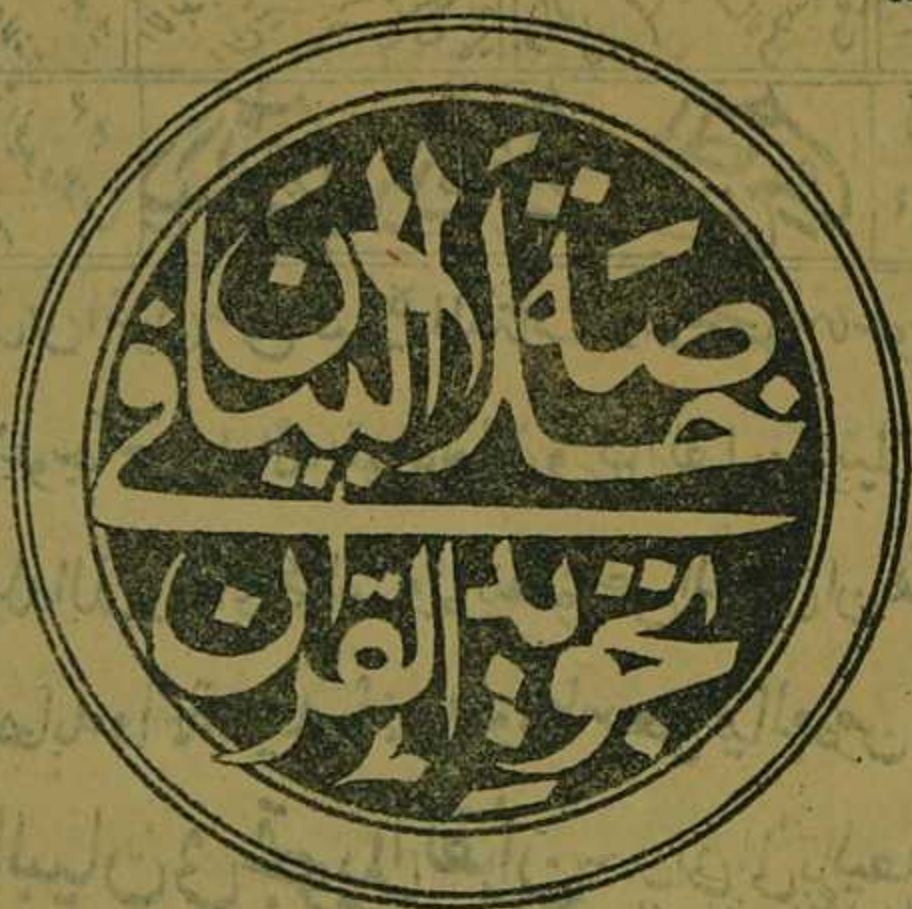 خلاصة البيان في
تجويد القران